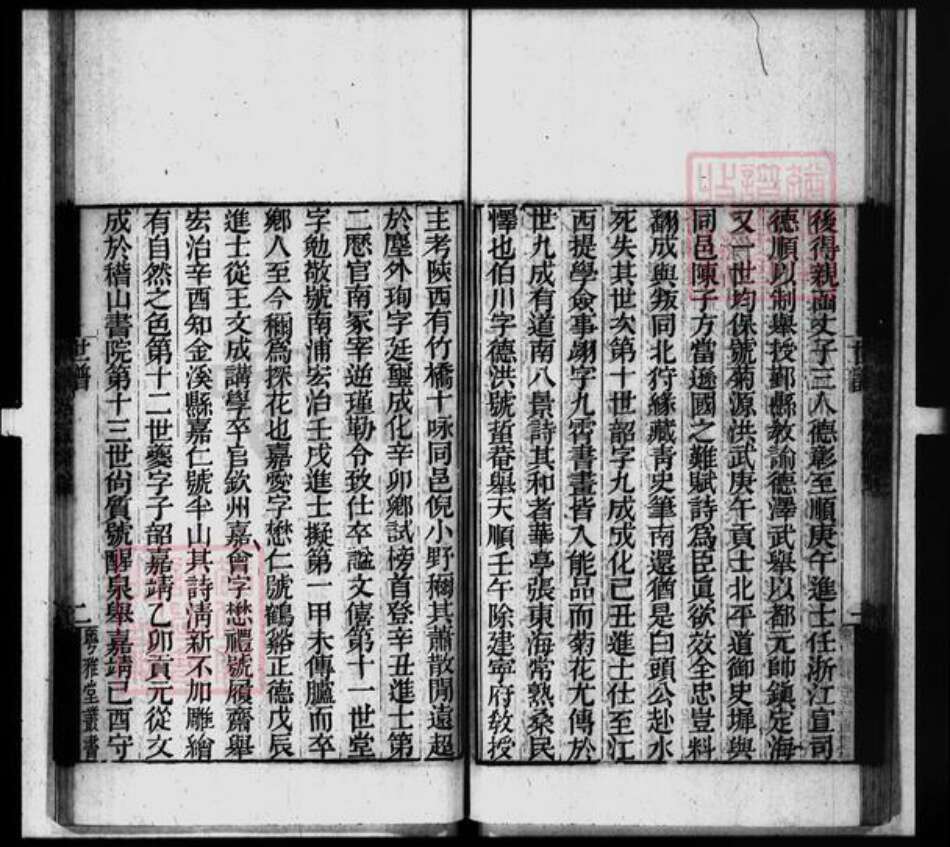 後得親而丈子三人德彰至順庚午進士任浙江宣司
德順以制舉授鄞縣教諭德澤武舉以都元帥鎮定海
又一世均保號菊源洪武庚午貢士北平道御史墀與
同邑陳子方當遜國之難賦詩為臣眞欲效全忠豈料
翻成與叛同北狩緣藏青史筆南還猶是白頭公赴水
死失其世次第十世韶字九成成化己丑進士仕至江
西提學僉事翊字九霄書畫皆入能品而菊花尤傳於
世九成有道南八景詩其和者華亭張東海常熟桑民
懌也伯川字德洪號蜇菴舉天順壬午除建寧府教授
主考陝西有竹橋十咏同邑倪小野稱其蕭散閒遠超
於塵外珣字廷璽成化辛卯鄉試榜首登辛丑進士第
二歷官南冢宰逆瑾勒令致仕卒諡文僖第十一世堂
字勉敬號南浦宏治壬戌進士擬第一甲未傳臚而卒
鄉人至今稱為探花也嘉愛字懋仁號鶴谿正德戊辰
進士從王文成講學卒官欽州嘉會字懋禮號履齋舉
宏治辛酉知金溪縣嘉仁號半山其詩清新不加雕繪
有自然之色第十二世夔字子韶嘉靖乙卯貢元從文
成於稽山書院第十三世尚質號醒泉舉嘉靖己酉守
世譜
二
粵雅堂叢書